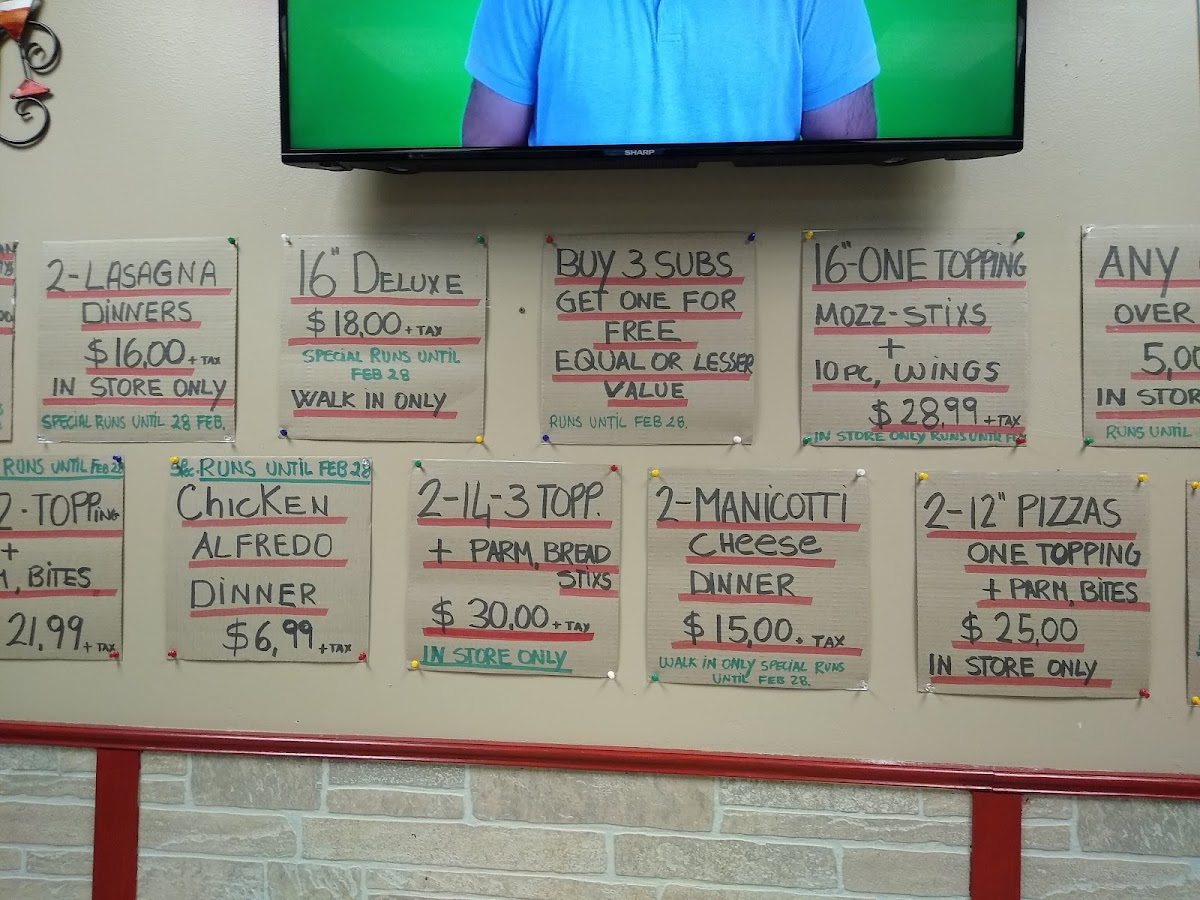 SHARP
2-LASAGNA
DINNERS
$16,00 + TAX
IN STORE ONLY
SPECIAL RUNS UNTIL 28 FEB.
16" DELUXE
$18,00 + TAX
SPECIAL RUNS UNTIL
FEB 28
WALK IN ONLY
BUY 3 SUBS
GET ONE FOR
FREE
EQUAL OR LESSER
VALUE
RUNS UNTIL FEB 28.
16"-ONE TOPPING
MOZZ-STIXS
+
10 PC, WINGS
$28,99 + TAX
IN STORE ONLY RUNS UNTIL
ANY
OVER
IN
RUNS UNTIL
RUNS UNTIL FEB 28
2-TOPPING
+
BITES
21,99 + TAX
RUNS UNTIL FEB 28
CHICKEN
ALFREDO
DINNER
$6,99 + TAX
2-14-3 TOPP.
+ PARM, BREAD
STIXS
$30,00 + TAX
IN STORE ONLY
2-MANICOTTI
CHEESE
DINNER
$15,00 + TAX
WALK IN ONLY SPECIAL RUNS
UNTIL FEB 28.
2-12" PIZZAS
ONE TOPPING
+ PARM, BITES
$25,00
IN STORE ONLY